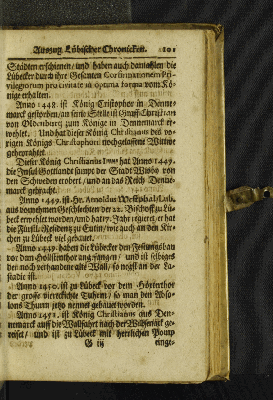 Auszug Lübischer Chronicken. 101
Städten erschienen / und haben auch damahlen die
Lübecker durch ihre Gesanten Confirmationem Pri-
vilegiorum pro civitate in optima forma vom Kö-
nige erhalten.
Anno 1448. ist König Cristophor in Denne-
marck gestorben / an seine Stelle ist Graff Christian
von Oldenburg zum Könige in Dennemarck er-
wehlet. Und hat dieser König Christianus des vo-
rigen Königs Christophori nachgelassene Wittwe
geheyrahtet.
Dieser König Christianus hat Anno 1449.
die Insul Gottland sampt der Stadt Wisbö von
den Schweden erobert / und an das Reich Denne-
marck gebracht.
Anno 1449. ist Hr. Arnoldus Westphal / Lub.
aus vornehmen Geschlechten der 22. Bischoff zu Lü-
beck erwehlet worden / und hat 17. Jahr regieret, er hat
die Fürstl. Residentz zu Eutin / wie auch an den Kir-
chen zu Lübeck viel gebauet.
Anno 1439. haben die Lübecker den Festungsbau
vor dem Hollstenthor angefangen / und ist selbiges
der noch vorhandene alte Wall / so negst an der La-
stadie ist.
Anno 1450. ist zu Lübeck vor dem Hörterthor
der grosse viereckichte Tuhrm / so man den Abso-
lons Thurm jetzo nennet gebauet worden.
Anno 1451. ist König Christianus aus Den-
nemarck auff die Wallfahrt nach der Wilsenack ge-
reiset / und ist zu Lübeck mit herrlichen Pomp
G iij einge-